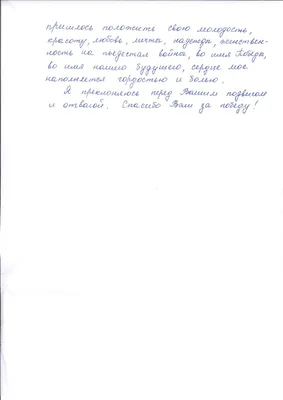 пришлось положить свою молодость,
красоту, любовь, мечты, надежды, женствен-
ность на пьедестал войны, во имя Победы,
во имя нашего будущего, сердце мое
наполняется гордостью и болью.
Я преклоняюсь перед Вашим подвигом
и отвагой. Спасибо Вам за победу!